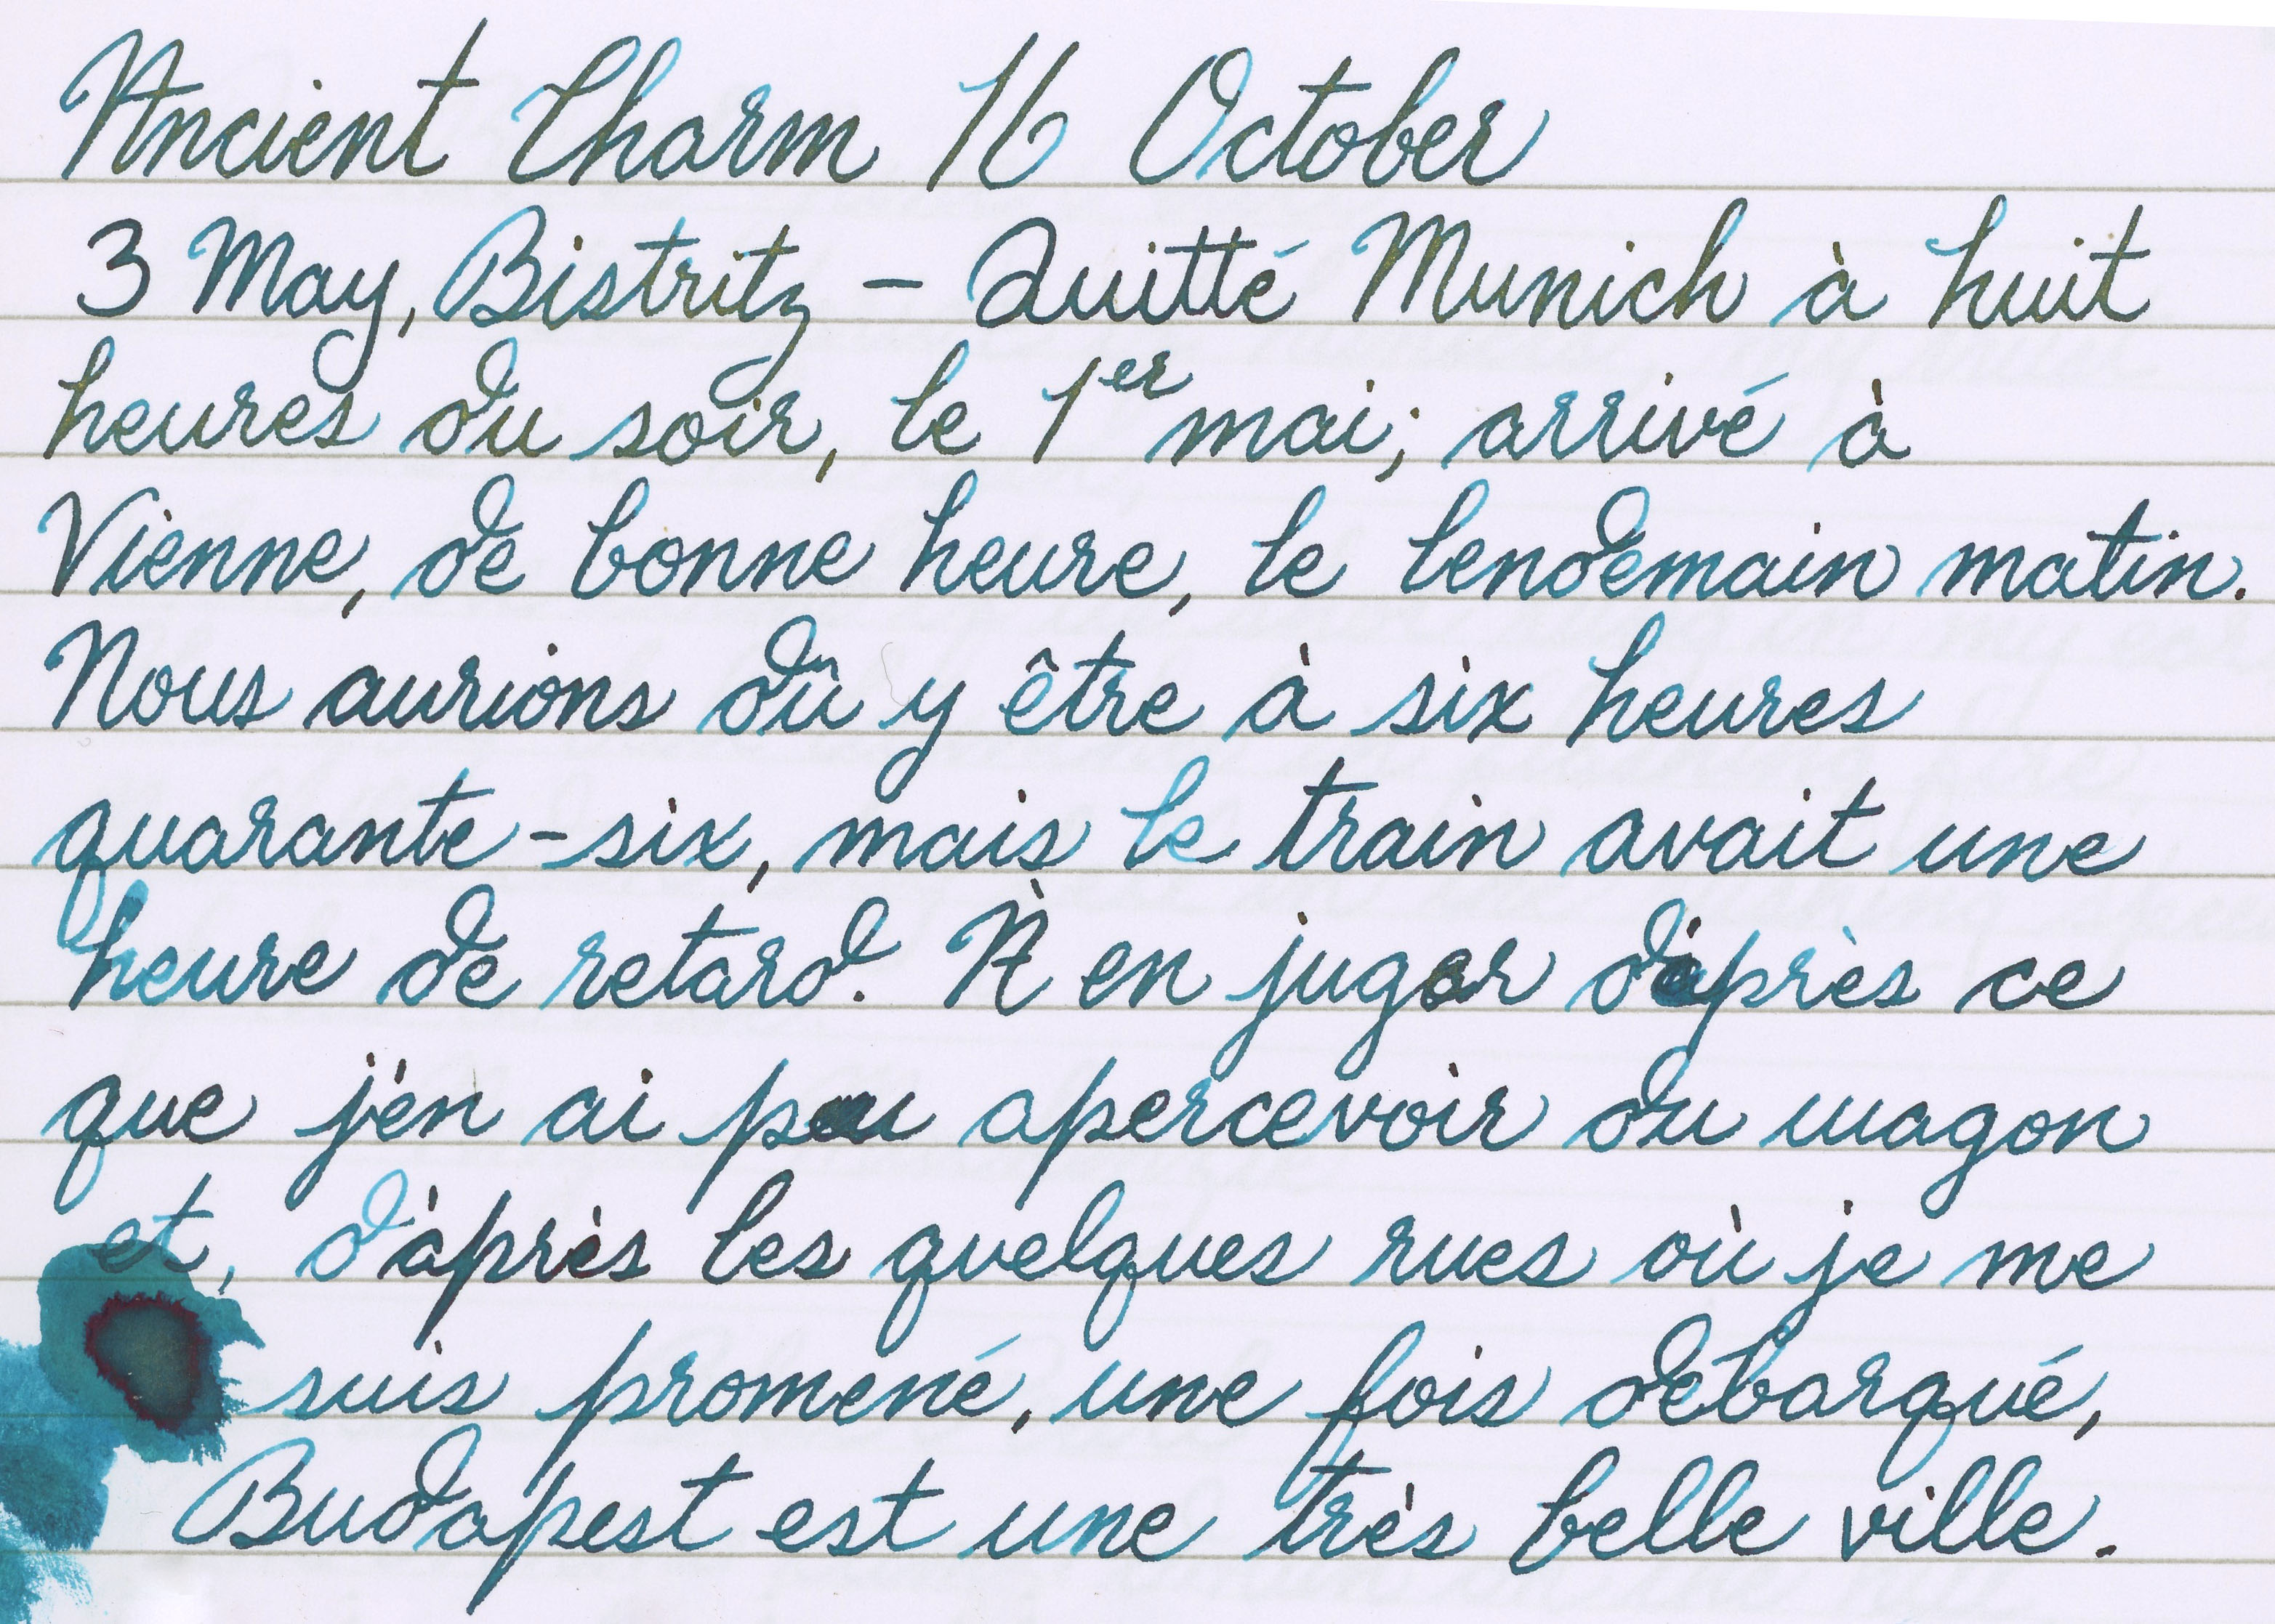 Ancient Charm 16 October
3 May, Bistritz – Quitté Munich à huit
heures du soir, le 1er mai; arrivé à
Vienne, de bonne heure, le lendemain matin.
Nous aurions dû y être à six heures
quarante-six, mais le train avait une
heure de retard. À en juger d'après ce
que j'en ai pu apercevoir du wagon
et, d'après les quelques rues où je me
suis promené, une fois débarqué,
Budapest est une très belle ville.